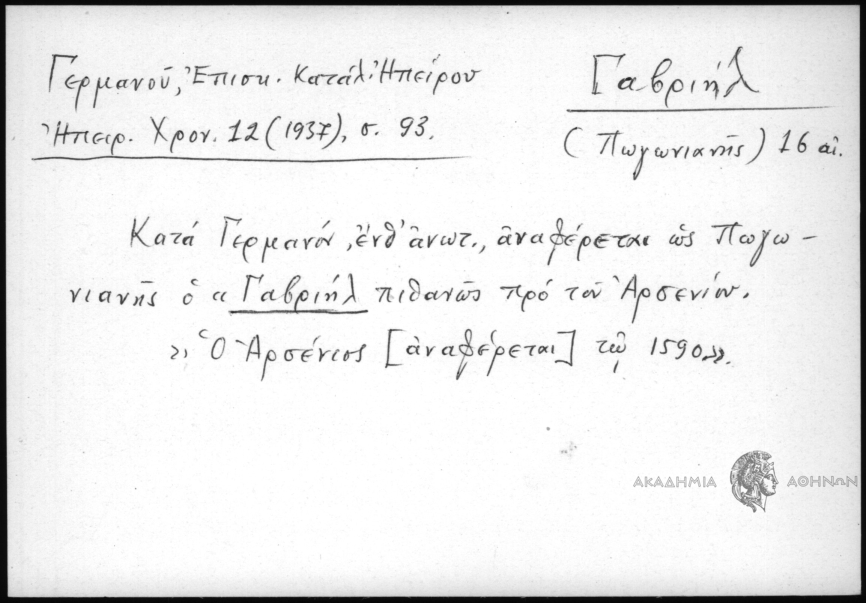 Γερμανοῦ, Ἐπισκ. Κατάλ. Ἠπείρου
Ἠπειρ. Χρον. 12 (1937), σ. 93.
Γαβριήλ
(Πωγωνιανῆς) 16 αἰ.
Κατά Γερμανόν, ἐνθ' ἀνωτ., ἀναφέρεται ὡς Πωγω-
νιανῆς ὁ α Γαβριήλ πιθανῶς πρό τοῦ Ἀρσενίου.
», Ὁ Ἀρσένιος [ἀναφέρεται] τῷ 1590».
ΑΚΑΔΗΜΙΑ ΑΘΗΝΩΝ